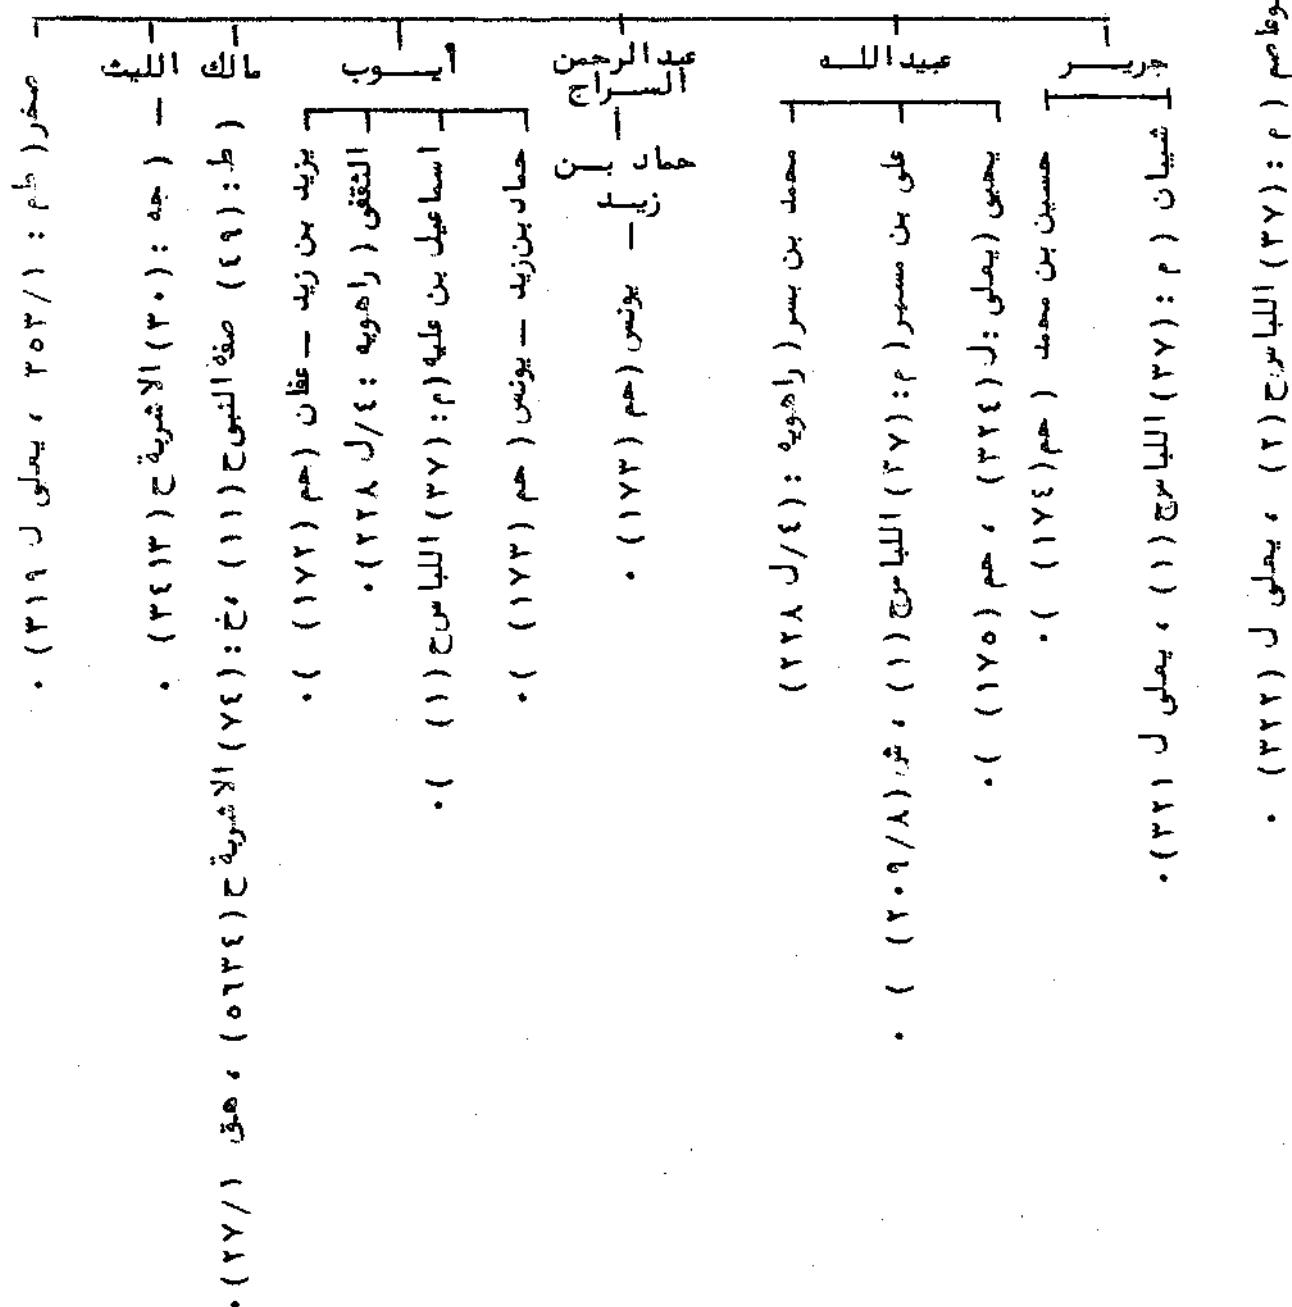 وعاصم (م : (٣٧) اللباس ح (٢) ، يعلى ل (٣٢٢) .
جريـــر
شيبان (م : (٣٧) اللباس ح (١) ، يعلى ل ٣٢١) .
حسين بن محمد (حم (١٧٤) ) .
عبيد اللـــه
يحيى (يعلى : ل (٣٢٤) ، حم (١٧٥) ) .
على بن مسهر (م : (٣٧) اللباس ح (١) ، ش (٢٠٩/٨) ) .
محمد بن بسر (راهويه : (٤/ل ٢٢٨)
عبد الرحمن
السراج
حماد بــن
زيــد
– يونس (حم (١٧٣) .
أيـــوب
حماد بن زيد – يونس (حم (١٧٣) ) .
اسماعيل بن عليه (م : (٣٧) اللباس ح (١) ) .
الثقفى (راهويه : ٤/ل ٢٢٨) .
يزيد بن زيد – عفان (حم (١٧٢) ) .
مالك
(ط : (٤٩) صفة النبى ح (١١) ، خ : (٧٤) الاشربة ح (٥٦٣٤) ، هق ٢٧/١) .
الليث
– (جه : (٣٠) الاشربة ح (٣٤١٣) .
صخر (طم : ٣٥٣/١ ، يعلى ل ٣١٩) .